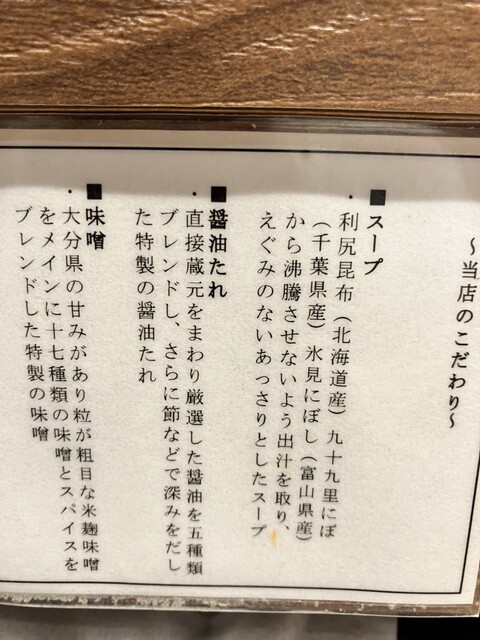 ～当店のこだわり～
■スープ
・利尻昆布（北海道産）九十九里にぼ
（千葉県産）氷見にぼし（富山県産）
から沸騰させないよう出汁を取り、
えぐみのないあっさりとしたスープ
■醤油たれ
・直接蔵元をまわり厳選した醤油を五種類
ブレンドし、さらに節などで深みをだし
た特製の醤油たれ
■味噌
・大分県の甘みがあり粒が粗目な米麹味噌
をメインに十七種類の味噌とスパイスを
ブレンドした特製の味噌